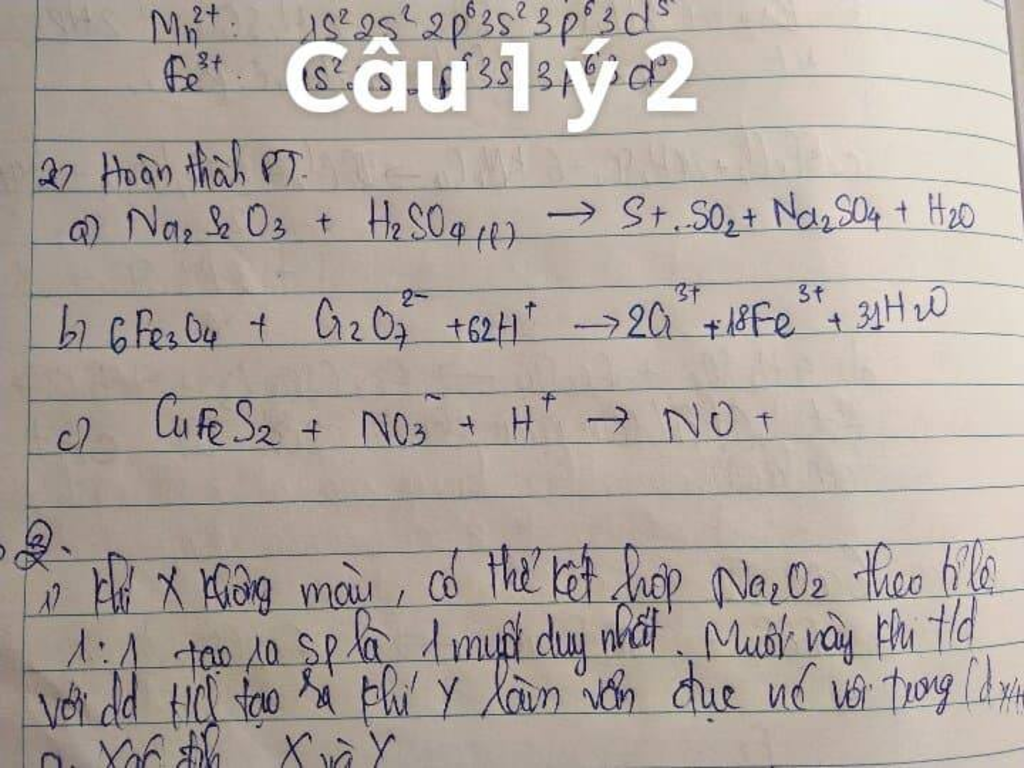 Mn²⁺: 1s²2s²2p⁶3s²3p⁶3d⁵
Fe³⁺: 1s² s 2p⁶3s 3p⁶3d⁵
Câu 1 ý 2
2) Hoàn thành PT.
a) Na₂S₂O₃ + H₂SO₄(l) → S + ..SO₂ + Na₂SO₄ + H₂O
b) 6Fe₃O₄ + Cr₂O₇²⁻ + 62H⁺ → 2Cr³⁺ + 18Fe³⁺ + 31H₂O
c) CuFeS₂ + NO₃⁻ + H⁺ → NO +
2.
1) Khí X không màu, có thể kết hợp Na₂O₂ theo tỉ lệ
1:1 tạo ra sp là 1 muối duy nhất. Muối này khi t/d
với dd HCl tạo ra khí Y làm vẩn đục nc vôi trong
a. Xác định X và Y